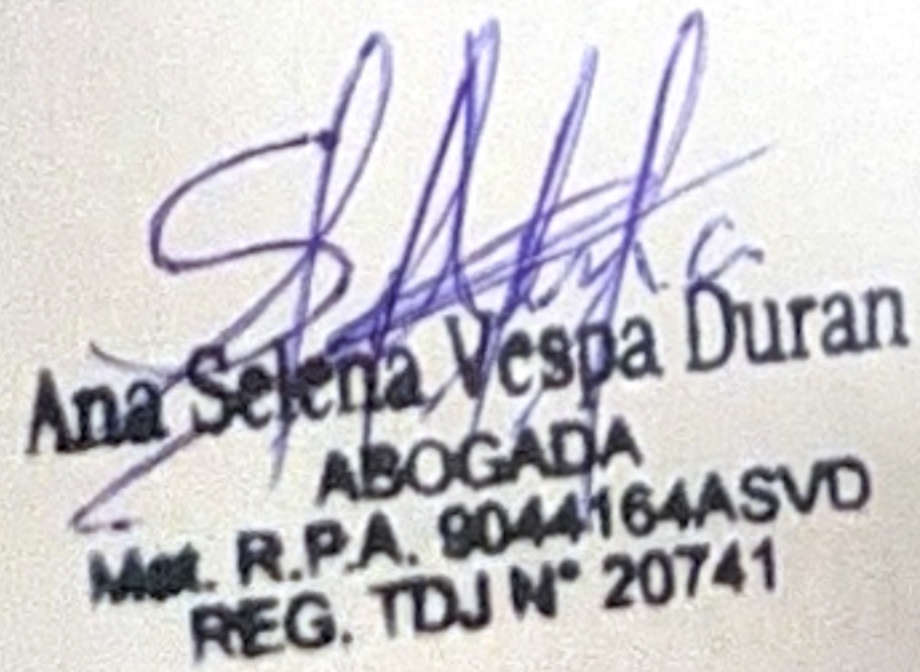 Ana Selena Vespa Duran
ABOGADA
Mat. R.P.A. 9044164ASVD
REG. TDJ N° 20741